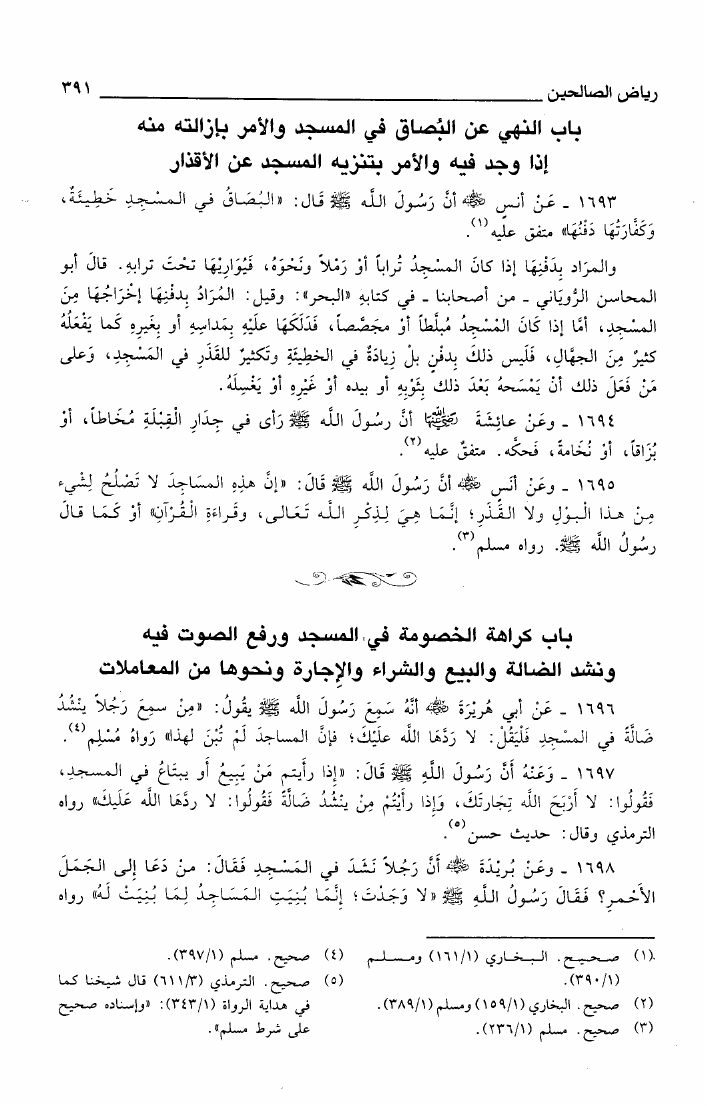 رياض الصالحين ٣٩١
باب النهي عن البُصاق في المسجد والأمر بإزالته منه
إذا وجد فيه والأمر بتنزيه المسجد عن الأقذار
١٦٩٣ ـ عَنْ أنسٍ ﷺ أنَّ رَسُولَ اللَّه ﷺ قَال: «البُصَاقُ في المسْجِدِ خَطِيئَةٌ،
وَكَفَّارَتُهَا دَفْنُهَا» متفق عليه(١).
والمرَاد بِدَفْنِهَا إذا كانَ المسْجِدُ تُراباً أوْ رَمْلاً ونَحْوَهُ، فَيُوَارِيْهَا تحْتَ ترابهِ. قالَ أبو
المحاسن الرُّوَيَاني ـ من أصحابنا ـ في كتابهِ «البحر»: وقيل: المُرَادُ بِدفْنِهَا إخْرَاجُهَا مِنَ
المسْجِدِ، أمَّا إذا كَانَ المْسْجِدُ مُبلَّطاً أوْ مجَصَّصاً، فَدَلَكَهَا علَيْهِ بِمَداسِهِ أو بغَيرِهِ كَما يَفْعَلُهُ
كثيرٌ مِنَ الجهَّالِ، فَلَيس ذلكَ بِدفْنٍ بلْ زِيادَةٌ في الخطِيئَةِ وتَكثيرٌ للقَذَرِ في المَسْجِدِ، وَعلى
مَنْ فَعَلَ ذلك أنْ يَمْسَحهُ بَعْدَ ذلك بِثَوْبِهِ أو بيده أوْ غَيْرِهِ أوْ يَغْسِلَهُ.
١٦٩٤ ـ وعَنْ عائِشَةَ رضي الله عنها أنَّ رسُولَ اللَّه ﷺ رَأى في جِدَارِ الْقِبْلَةِ مُخَاطاً، أوْ
بُزَاقاً، أوْ نُخَامةً، فَحكَّه. متفقٌ عليه(٢).
١٦٩٥ ـ وعَنْ أنَسٍ رضي الله عنه أنَّ رَسُولَ اللَّه ﷺ قَالَ: «إنَّ هذِهِ المسَاجِدَ لا تَصْلُحُ لِشْيءٍ
مِنْ هذا البوْلِ ولا القَذَرِ؛ إنَّمَا هِيَ لِذِكْرِ اللَّه تَعَالى، وقَراءَةِ الْقُرْآنِ» أوْ كَمَا قالَ
رسُولُ اللَّه ﷺ. رواه مسلم(٣).
باب كراهة الخصومة في المسجد ورفع الصوت فيه
ونشد الضالة والبيع والشراء والإجارة ونحوها من المعاملات
١٦٩٦ ـ عَنْ أبي هُريْرَةَ رضي الله عنه أنَّهُ سَمِعَ رَسُولَ اللَّه ﷺ يقُولُ: «مِنْ سمِعَ رَجُلاً ينْشُدُ
ضَالَّةً في المسْجِدِ فَلْيَقُلْ: لا رَدَّهَا اللَّه علَيْكَ؛ فإنَّ المساجدَ لَمْ تُبْنَ لهذا» رَواهُ مُسْلِم(٤).
١٦٩٧ ـ وَعَنْهُ أنَّ رَسُولَ اللَّهِ ﷺ قَالَ: «إذا رأيتم مَنْ يَبِيعُ أو يبتَاعُ في المسجدِ،
فَقُولُوا: لا أرْبَحَ اللَّه تِجَارتَكَ، وَإذا رأيْتُمْ مِنْ ينْشُدُ ضَالَّةً فَقُولُوا: لا ردَّهَا اللَّه عَلَيكَ» رواه
الترمذي وقال: حديث حسن(٥).
١٦٩٨ ـ وعَنْ بُريْدَةَ رضي الله عنه أنَّ رَجُلاً نَشَدَ في المَسْجِدِ فَقَالَ: منْ دَعَا إلى الجَمَلِ
الأحْمرِ؟ فَقَالَ رَسُولُ اللَّهِ ﷺ «لا وَجَدْتَ؛ إنَّمَا بُنِيَتِ المَسَاجِدُ لِمَا بُنِيَتْ لَهُ» رواه
(١) صحيح. البخاري (١٦١/١) ومسلم
(٣٩٠/١).
(٢) صحيح. البخاري (١٥٩/١) ومسلم (٣٨٩/١).
(٣) صحيح. مسلم (٢٣٦/١).
(٤) صحيح. مسلم (٣٩٧/١).
(٥) صحيح. الترمذي (٦١١/٣) قال شيخنا كما
في هداية الرواة (٣٤٣/١): «وإسناده صحيح
على شرط مسلم».